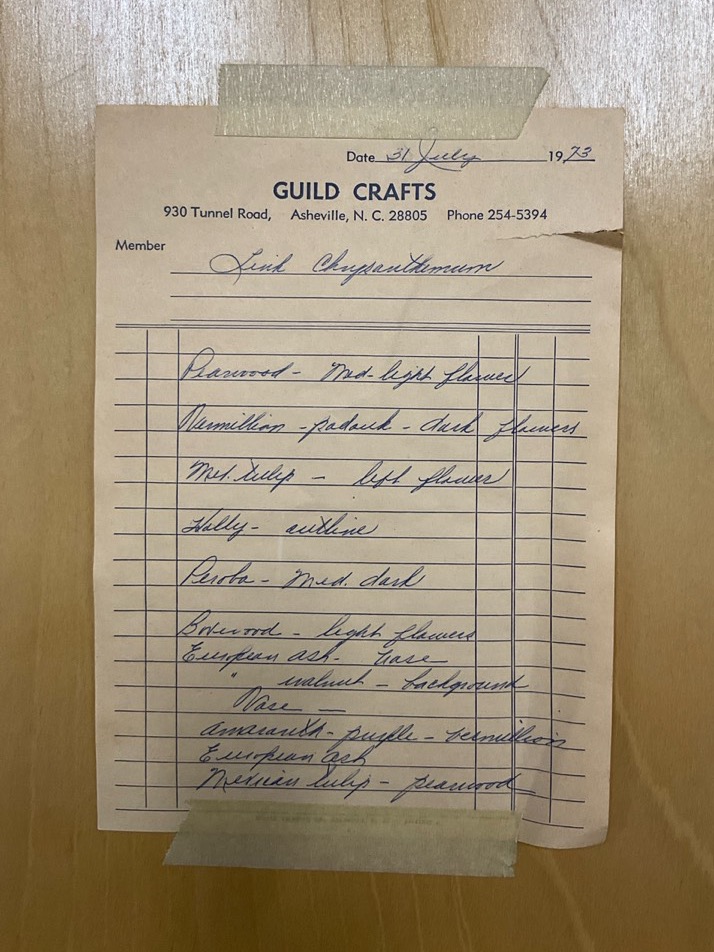 Date 31 July 1973
GUILD CRAFTS
930 Tunnel Road, Asheville, N. C. 28805 Phone 254-5394
Member
Chrysanthemum
Pearwood - Med-light flower
Vermillion - padouk - dark flowers
Mex. tulip - left flower
Holly - outline
Peroba - Med. dark
Boxwood - light flowers
European ash - vase
" walnut - background
Vase —
amaranth - purple - vermillion
European ash
Mexican tulip - pearwood